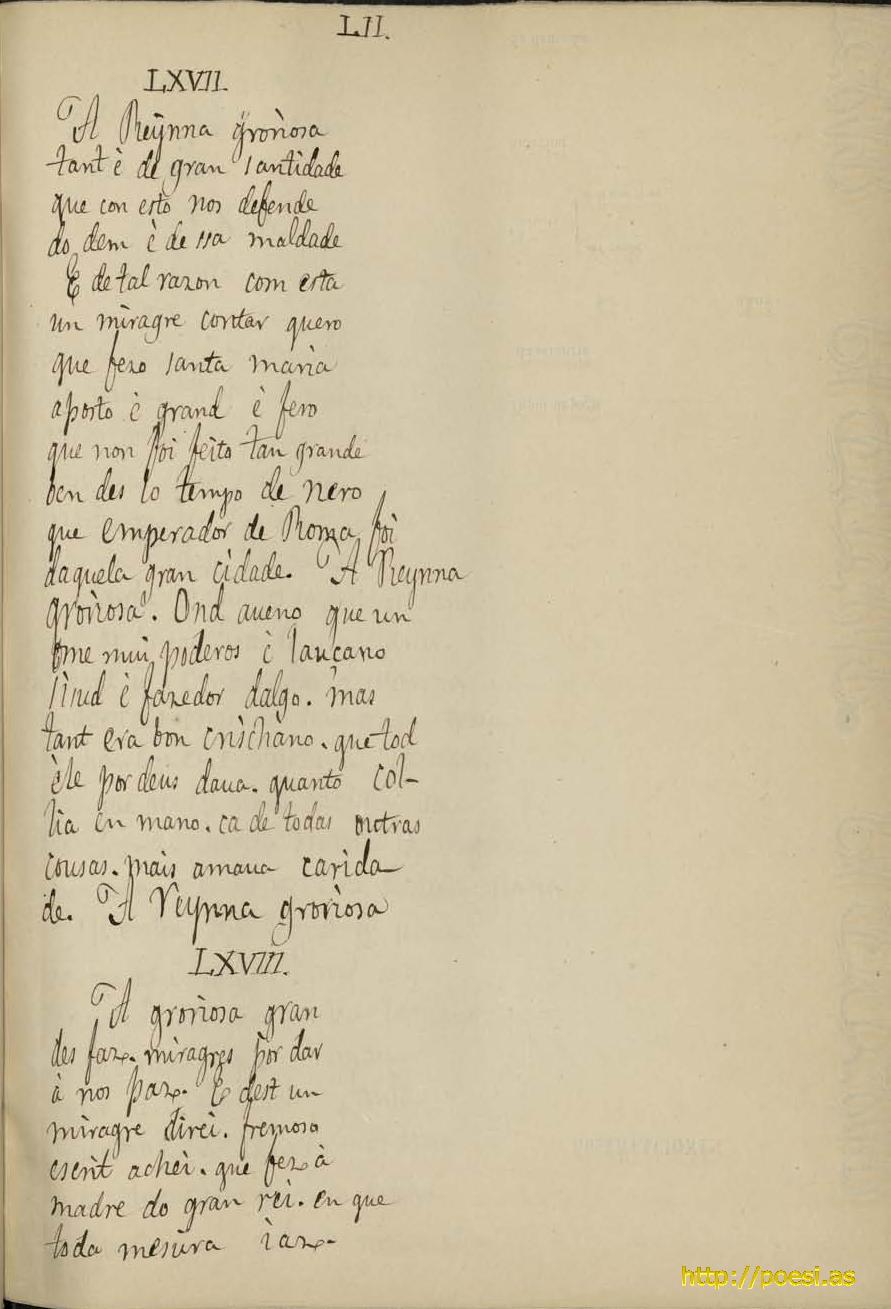 LII.
LXVII.
A Reÿnna gror̀iosa
tant è de gran santìdade
que con esto nos defende
do dem è de ssa maldade
E de tal razon com esta
un mìragre contar quero
que fezo santa marìa
aposto è grand è fero
que non foi feìto tan grande
ben des lo tempo de nero
que emperador de Roma foì
daquela gran cìdade. A Reynna
groriosa. Ond aueno que un
ome mui poderos è louçano
sisud è fazedor dalgo. mas
tant era bon crischìano. que tod
èle por deus daua. quanto col-
lia en mano. ca de todas outras
cousas. maìs amaua carìda-
de. A Reynna grorìosa
LXVIII.
A grorìosa gran
des faz. mìragres por dar
à nos paz. E dest un
mìragre dìreì. fremoso
escrit acheì. que fez à
madre do gran reì. en que
toda mesura ìaz.
http://poesi.as